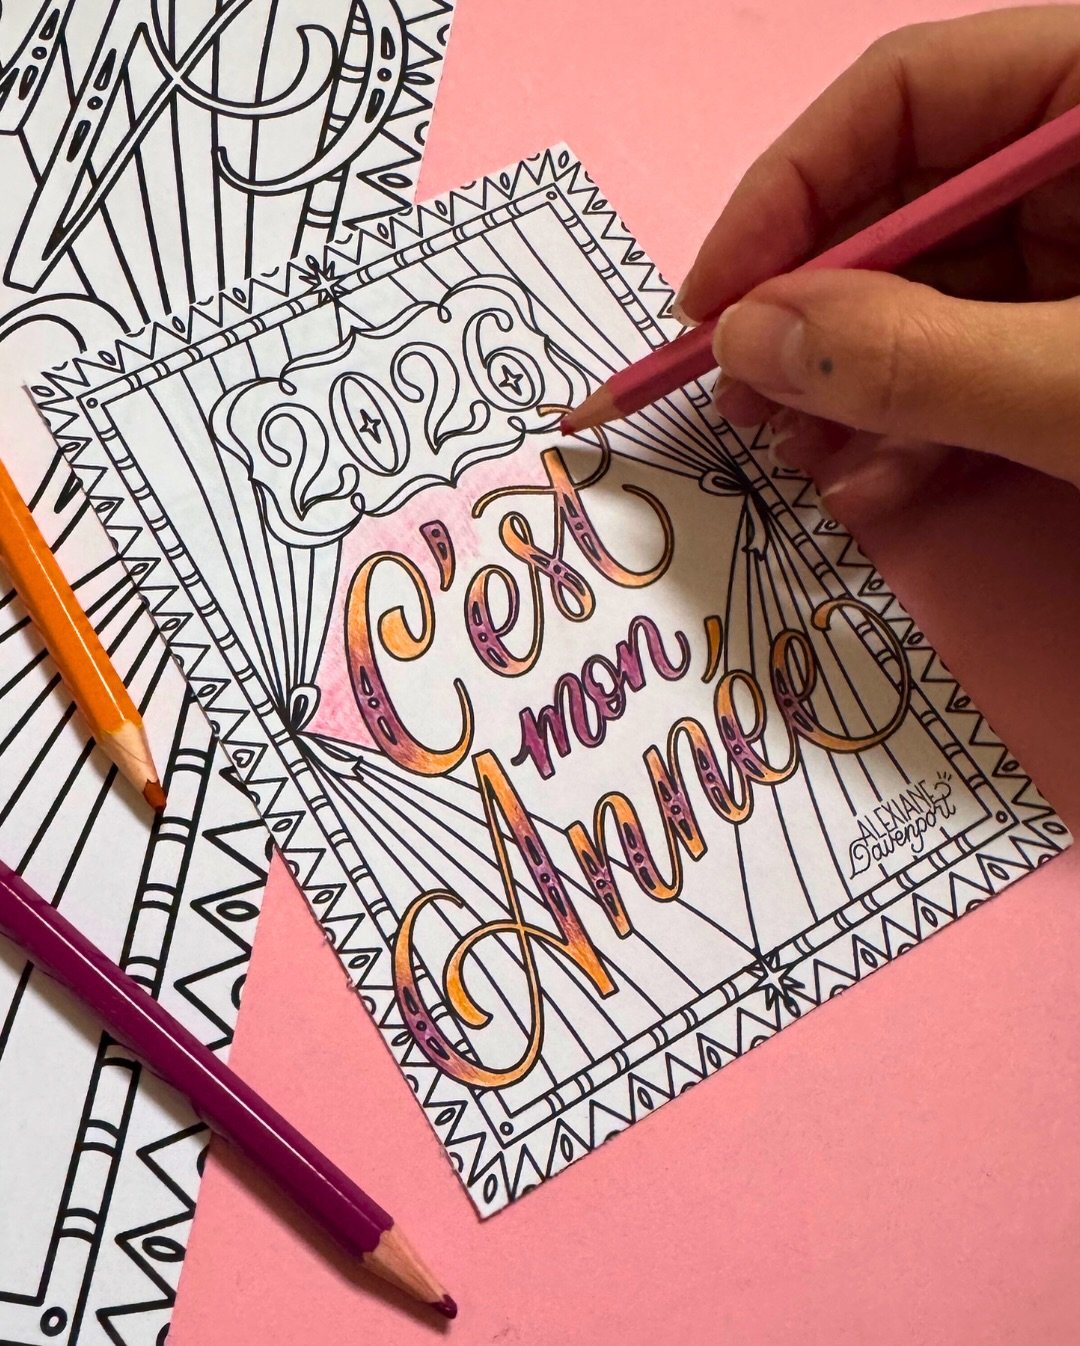 2026
C'est
mon
Année
ALEXIANE
Davenport